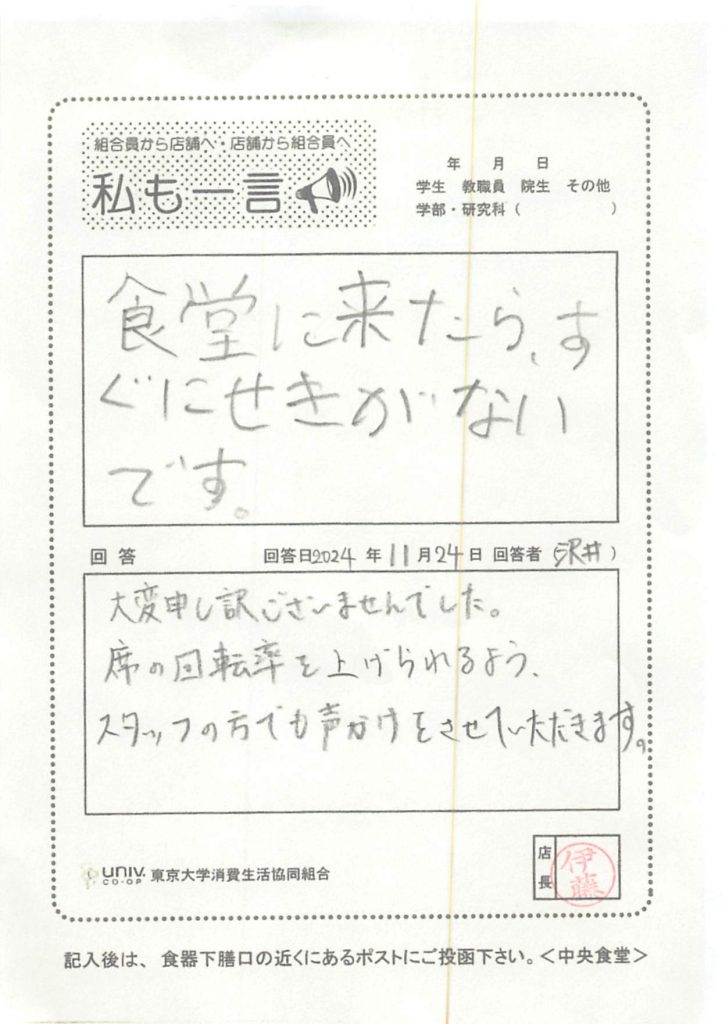 組合員から店舗へ・店舗から組合員へ
私も一言
年 月 日
学生 教職員 院生 その他
学部・研究科（ ）
食堂に来たら、す
ぐにせきがない
です。
回答 回答日2024年11月24日 回答者（沢井）
大変申し訳ございませんでした。
席の回転率を上げられるよう、
スタッフの方でも声かけをさせていただきます。
店長 伊藤
UNIV. CO-OP 東京大学消費生活協同組合
記入後は、食器下膳口の近くにあるポストにご投函下さい。＜中央食堂＞